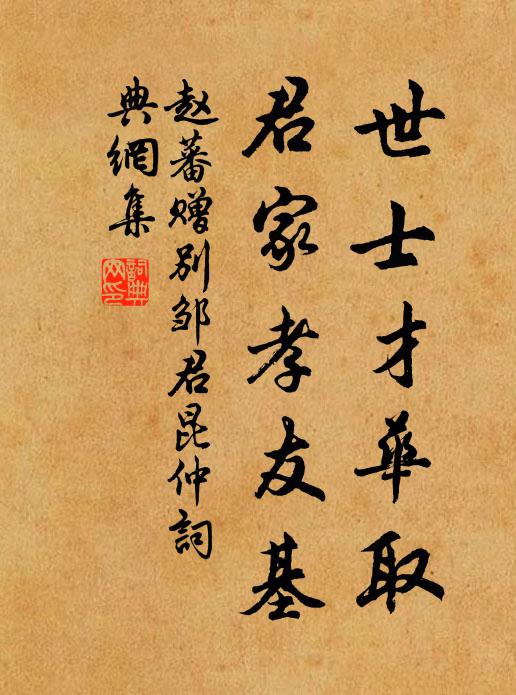 世士才華取
君家孝友基
赵蕃赠别邹君昆仲詞
典網集
詞典
网印